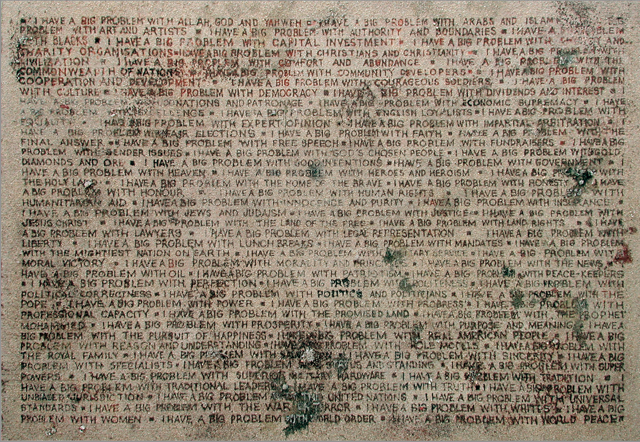 I HAVE A BIG PROBLEM WITH ALLAH, GOD AND YAHWEH * I HAVE A BIG PROBLEM WITH ARABS AND ISLAM *
PROBLEM WITH ART AND ARTISTS * I HAVE A BIG PROBLEM WITH AUTHORITY AND BOUNDARIES * I HAVE A PROBLEM
WITH BLACKS * I HAVE A BIG PROBLEM WITH CAPITAL INVESTMENT * I HAVE A BIG PROBLEM WITH AND
CHARITY ORGANISATIONS * I HAVE A BIG PROBLEM WITH CHRISTIANS AND CHRISTIANITY * I HAVE A BIG PROBLEM WITH
CIVILIZATION * I HAVE A BIG PROBLEM WITH COMFORT AND ABUNDANCE * I HAVE A BIG PROBLEM WITH THE
COMMONWEALTH OF NATIONS * I HAVE A BIG PROBLEM WITH COMMUNITY DEVELOPERS * I HAVE A BIG PROBLEM WITH
COOPERATION AND DEVELOPMENT * I HAVE A BIG PROBLEM WITH COURAGEOUS SOLDIERS * I HAVE A BIG PROBLEM
WITH CULTURE * I HAVE A BIG PROBLEM WITH DEMOCRACY * I HAVE A BIG PROBLEM WITH DIVIDENDS AND INTEREST *
I HAVE A BIG PROBLEM WITH DONATIONS AND PATRONAGE * I HAVE A BIG PROBLEM WITH ECONOMIC SUPREMACY * I HAVE
A BIG PROBLEM WITH EXCELLENCE * I HAVE A BIG PROBLEM WITH ENGLISH LOYALISTS * I HAVE A BIG PROBLEM WITH
EQUALITY * I HAVE A BIG PROBLEM WITH EXPERT OPINION * I HAVE A BIG PROBLEM WITH IMPARTIAL ARBITRATION *
I HAVE A BIG PROBLEM WITH ELECTIONS * I HAVE A BIG PROBLEM WITH FAITH * I HAVE A BIG PROBLEM WITH THE
FINAL ANSWER * I HAVE A BIG PROBLEM WITH FREE SPEECH * I HAVE A BIG PROBLEM WITH FUNDRAISERS * I HAVE A BIG
PROBLEM WITH GENDER ISSUES * I HAVE A BIG PROBLEM WITH GOD'S CHOSEN PEOPLE * I HAVE A BIG PROBLEM WITH GOLD,
DIAMONDS AND ORE * I HAVE A BIG PROBLEM WITH GOOD INTENTIONS * I HAVE A BIG PROBLEM WITH GOVERNMENT *
I HAVE A BIG PROBLEM WITH HEAVEN * I HAVE A BIG PROBLEM WITH HEROES AND HEROISM * I HAVE A BIG PROBLEM WITH
THE HOLY LAND * I HAVE A BIG PROBLEM WITH THE HOME OF THE BRAVE * I HAVE A BIG PROBLEM WITH HONESTY * I HAVE
A BIG PROBLEM WITH HONOUR * I HAVE A BIG PROBLEM WITH HUMAN RIGHTS * I HAVE A BIG PROBLEM WITH
HUMANITARIAN AID * I HAVE A BIG PROBLEM WITH INNOCENCE AND PURITY * I HAVE A BIG PROBLEM WITH INSURANCE
* I HAVE A BIG PROBLEM WITH JEWS AND JUDAISM * I HAVE A BIG PROBLEM WITH JUSTICE * I HAVE A BIG PROBLEM WITH
JESUS CHRIST * I HAVE A BIG PROBLEM WITH THE LAND OF THE FREE * I HAVE A BIG PROBLEM WITH LAND RIGHTS * I HAVE
A BIG PROBLEM WITH LAWYERS * I HAVE A BIG PROBLEM WITH LEGAL REPRESENTATION * I HAVE A BIG PROBLEM WITH
LIBERTY * I HAVE A BIG PROBLEM WITH LUNCH BREAKS * I HAVE A BIG PROBLEM WITH MANDATES * I HAVE A BIG PROBLEM
WITH THE MIGHTIEST NATION ON EARTH * I HAVE A BIG PROBLEM WITH SERVICE * I HAVE A BIG PROBLEM WITH
MORAL VICTORY * I HAVE A BIG PROBLEM WITH MORALITY AND PRINCIPLES * I HAVE A BIG PROBLEM WITH THE NEWS *
I HAVE A BIG PROBLEM WITH OIL * I HAVE A BIG PROBLEM WITH PATRIOTISM * I HAVE A BIG PROBLEM WITH PEACE-KEEPERS
* I HAVE A BIG PROBLEM WITH PERFECTION * I HAVE A BIG PROBLEM WITH POLITENESS * I HAVE A BIG PROBLEM WITH
POLITICAL CORRECTNESS * I HAVE A BIG PROBLEM WITH POLITICS AND POLITICIANS * I HAVE A BIG PROBLEM WITH THE
POPE * I HAVE A BIG PROBLEM WITH POWER * I HAVE A BIG PROBLEM WITH PROGRESS * I HAVE A BIG PROBLEM WITH
PROFESSIONAL CAPACITY * I HAVE A BIG PROBLEM WITH THE PROMISED LAND * I HAVE A BIG PROBLEM WITH THE PROPHET
MOHAMMED * I HAVE A BIG PROBLEM WITH PROSPERITY * I HAVE A BIG PROBLEM WITH PURPOSE AND MEANING * I HAVE A BIG
PROBLEM WITH THE PURSUIT OF HAPPINESS * I HAVE A BIG PROBLEM WITH REAL AMERICAN PEOPLE * I HAVE A BIG
PROBLEM WITH REASON AND UNDERSTANDING * I HAVE A BIG PROBLEM WITH ROLE MODELS * I HAVE A BIG PROBLEM WITH
THE ROYAL FAMILY * I HAVE A BIG PROBLEM WITH * I HAVE A BIG PROBLEM WITH SINCERITY * I HAVE A BIG
PROBLEM WITH SPECIALISTS * I HAVE A BIG PROBLEM WITH STATUS AND STANDING * I HAVE A BIG PROBLEM WITH SUPER
POWERS * I HAVE A BIG PROBLEM WITH * I HAVE A BIG PROBLEM WITH TRADITION *
I HAVE A BIG PROBLEM WITH TRADITIONAL LEADERS * I HAVE A BIG PROBLEM WITH TRUTH * I HAVE A BIG PROBLEM WITH
UNBIASED JURISDICTION * I HAVE A BIG PROBLEM WITH THE UNITED NATIONS * I HAVE A BIG PROBLEM WITH UNIVERSAL
STANDARDS * I HAVE A BIG PROBLEM WITH THE WAR ON TERROR * I HAVE A BIG PROBLEM WITH WHITES * I HAVE A BIG
PROBLEM WITH WOMEN * I HAVE A BIG PROBLEM WITH WORLD ORDER * I HAVE A BIG PROBLEM WITH WORLD PEACE *